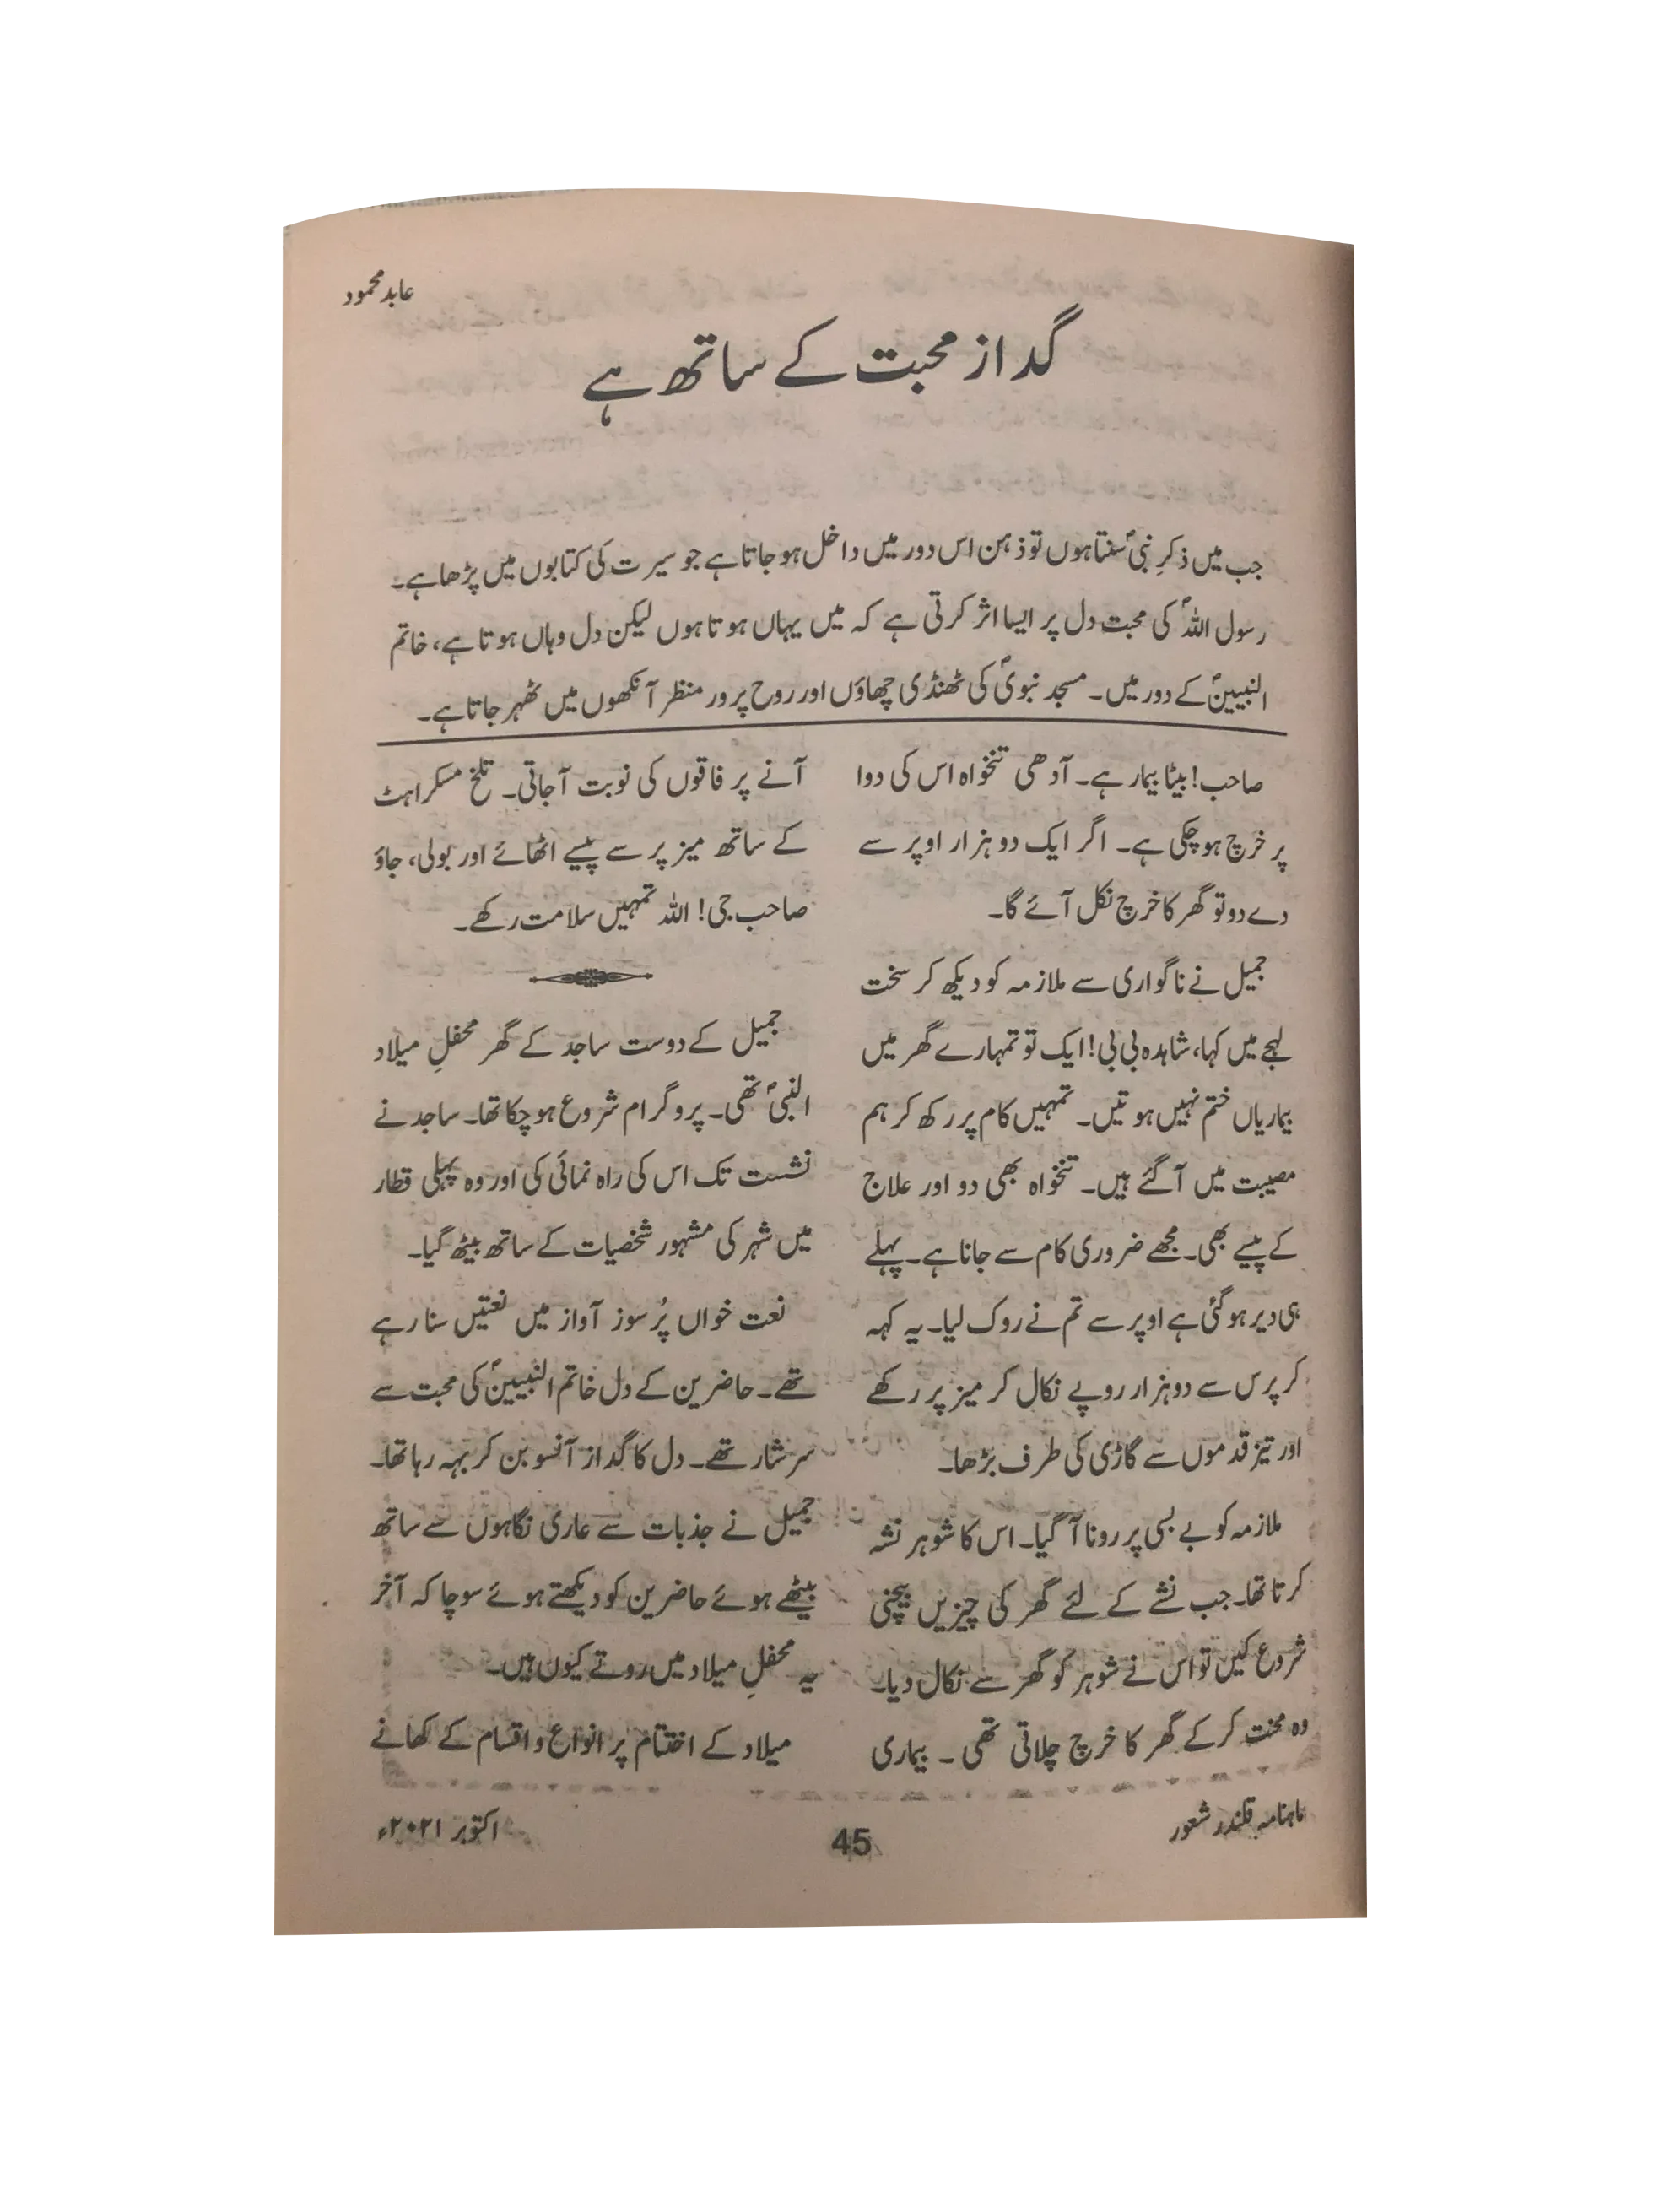 عابد محمود
گداز محبت کے ساتھ ہے
جب میں ذکرِ نبیؐ سنتا ہوں تو ذہن اس دور میں داخل ہو جاتا ہے جو سیرت کی کتابوں میں پڑھا ہے۔
رسول اللہؐ کی محبت دل پر ایسا اثر کرتی ہے کہ میں یہاں ہوتا ہوں لیکن دل وہاں ہوتا ہے، خاتم
النبیینؐ کے دور میں۔ مسجد نبویؐ کی ٹھنڈی چھاؤں اور روح پرور منظر آنکھوں میں ٹھہر جاتا ہے۔
صاحب! بیٹا بیمار ہے۔ آدھی تنخواہ اس کی دوا
پر خرچ ہوچکی ہے۔ اگر ایک دو ہزار اوپر سے
دے دو تو گھر کا خرچ نکل آئے گا۔
جمیل نے ناگواری سے ملازمہ کو دیکھ کر سخت
لہجے میں کہا، شاہدہ بی بی! ایک تو تمہارے گھر میں
بیماریاں ختم نہیں ہوتیں۔ تمہیں کام پر رکھ کر ہم
مصیبت میں آگئے ہیں۔ تنخواہ بھی دو اور علاج
کے پیسے بھی۔ مجھے ضروری کام سے جانا ہے۔ پہلے
ہی دیر ہوگئی ہے اوپر سے تم نے روک لیا۔ یہ کہہ
کر پرس سے دو ہزار روپے نکال کر میز پر رکھے
اور تیز قدموں سے گاڑی کی طرف بڑھا۔
ملازمہ کو بے بسی پر رونا آگیا۔ اس کا شوہر نشہ
کرتا تھا۔ جب نشے کے لئے گھر کی چیزیں بیچنی
شروع کیں تو اس نے شوہر کو گھر سے نکال دیا۔
وہ محنت کرکے گھر کا خرچ چلاتی تھی ۔ بیماری
آنے پر فاقوں کی نوبت آجاتی۔ تلخ مسکراہٹ
کے ساتھ میز پر سے پیسے اٹھائے اور بولی، جاؤ
صاحب جی! اللہ تمہیں سلامت رکھے۔
جمیل کے دوست ساجد کے گھر محفلِ میلاد
النبیؐ تھی۔ پروگرام شروع ہوچکا تھا۔ ساجد نے
نشست تک اس کی راہ نمائی کی اور وہ پہلی قطار
میں شہر کی مشہور شخصیات کے ساتھ بیٹھ گیا۔
نعت خواں پُرسوز آواز میں نعتیں سنا رہے
تھے۔ حاضرین کے دل خاتم النبیینؐ کی محبت سے
سرشار تھے۔ دل کا گداز آنسو بن کر بہہ رہا تھا۔
جمیل نے جذبات سے عاری نگاہوں سے ساتھ
بیٹھے ہوئے حاضرین کو دیکھتے ہوئے سوچا کہ آخر
یہ محفلِ میلاد میں روتے کیوں ہیں۔
میلاد کے اختتام پر انواع و اقسام کے کھانے
ماہنامہ قلندر شعور
45
اکتوبر ۲۰۲۱ء